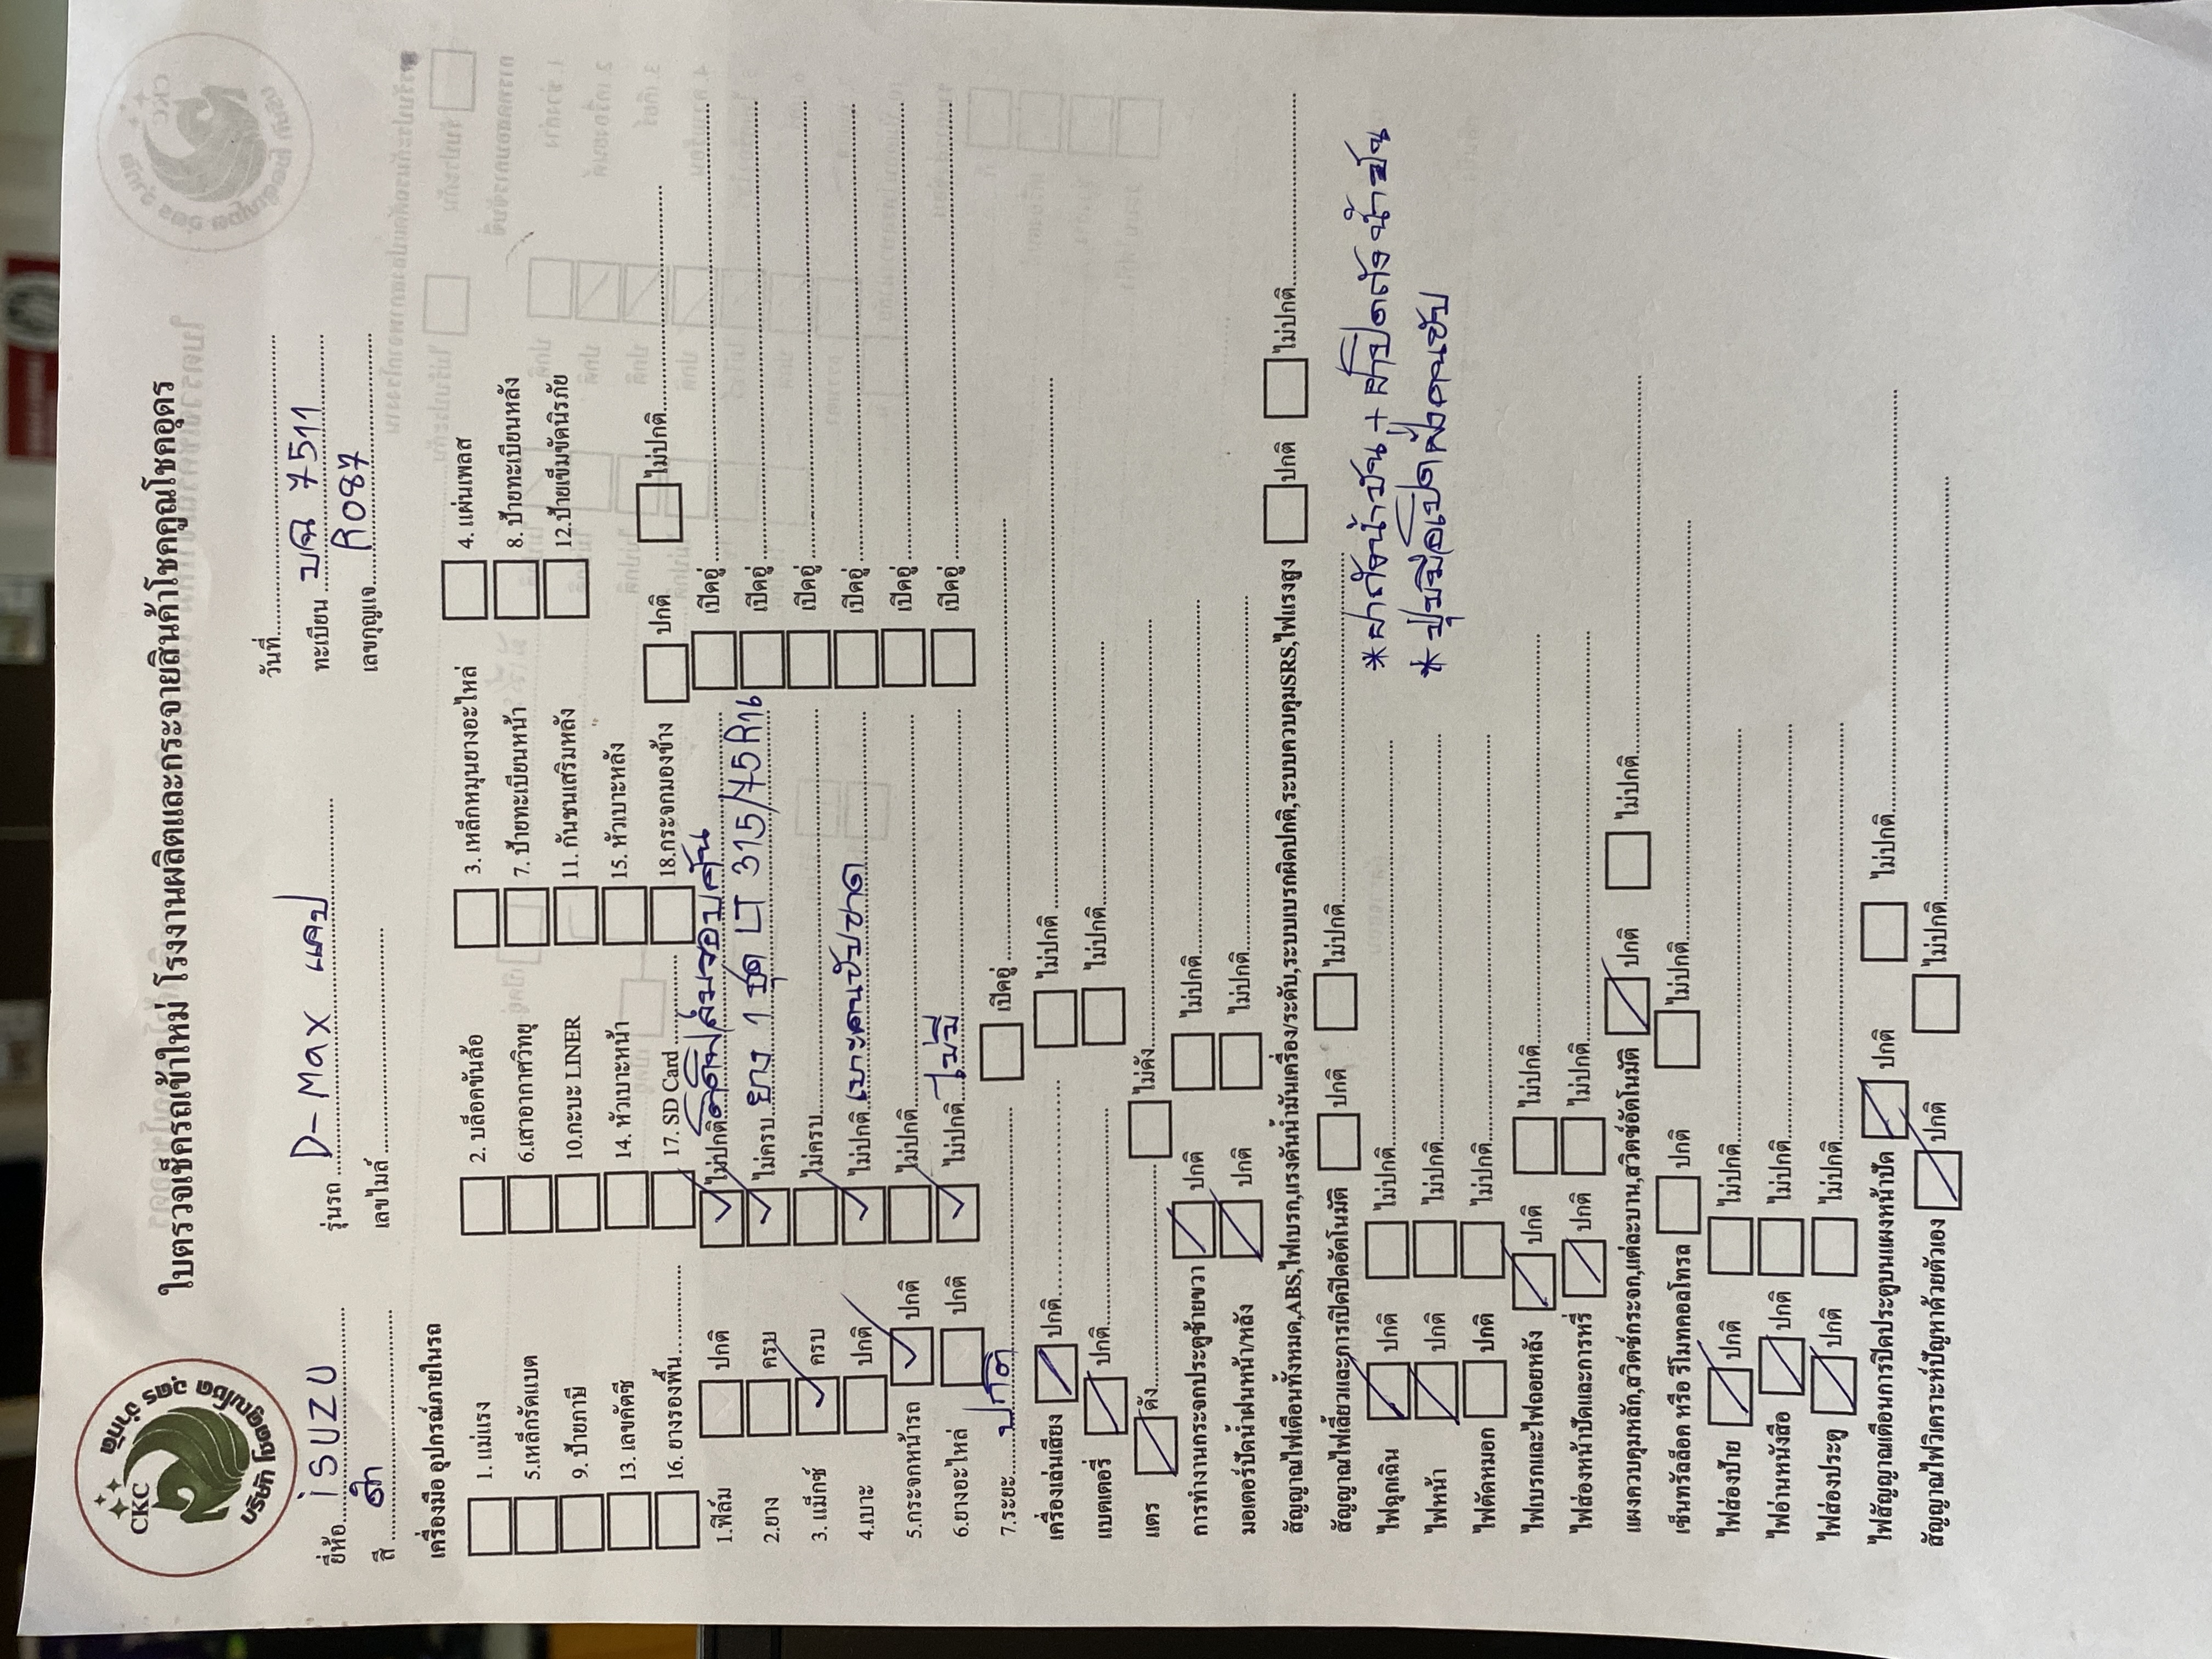 CKC
บริษัท โชคคูณโชค อุดร จำกัด
ใบตรวจเช็ครถเข้าใหม่ โรงงานผลิตและกระจายสินค้าโชคคูณโชคอุดร
วันที่
ยี่ห้อ iSUZU รุ่นรถ D-Max แคป ทะเบียน 7511
สี ดำ เลขไมล์ เลขกุญแจ R087
เครื่องมือ อุปกรณ์ภายในรถ
1. แม่แรง 2. บล็อคขันล้อ 3. เหล็กหมุนยางอะไหล่ 4. แผ่นเพลส
5.เหล็กรัดแบต 6.เสาอากาศวิทยุ 7. ป้ายทะเบียนหน้า 8. ป้ายทะเบียนหลัง
9. ป้ายภาษี 10.กะบะ LINER 11. กันชนเสริมหลัง 12.ป้ายเข็มขัดนิรภัย
13. เลขคัตซี 14. หัวเบาะหน้า 15. หัวเบาะหลัง
16. ยางรองพื้น 17. SD Card 18.กระจกมองข้าง ปกติ ไม่ปกติ
1.ฟิล์ม ปกติ ไม่ปกติ ติดฟิล์มรอบคัน เปิดอู่
2.ยาง ครบ ไม่ครบ ยาง 1 ชุด LT 315/75R16 เปิดอู่
3. แม็กซ์ ครบ ไม่ครบ เปิดอู่
4.เบาะ ปกติ ไม่ปกติ เบาะคนขับขาด เปิดอู่
5.กระจกหน้ารถ ปกติ ไม่ปกติ เปิดอู่
6.ยางอะไหล่ ปกติ ไม่ปกติ ไม่มี เปิดอู่
7.ระยะ ปกติ เปิดอู่
เครื่องเล่นเสียง ปกติ ไม่ปกติ
แบตเตอรี่ ปกติ ไม่ปกติ
แตร ดัง ไม่ดัง
การทำงานกระจกประตูซ้ายขวา ปกติ ไม่ปกติ
มอเตอร์ปัดน้ำฝนหน้า/หลัง ปกติ ไม่ปกติ
สัญญาณไฟเตือนทั้งหมด,ABS,ไฟเบรก,แรงดันน้ำมันเครื่อง/ระดับ,ระบบเบรกผิดปกติ,ระบบควบคุมSRS,ไฟแรงสูง ปกติ ไม่ปกติ
สัญญาณไฟเลี้ยวและการเปิดปิดอัตโนมัติ ปกติ ไม่ปกติ
ไฟฉุกเฉิน ปกติ ไม่ปกติ
* ฝาถังน้ำมัน + ฝาปิดถังน้ำมัน
ไฟหน้า ปกติ ไม่ปกติ
* ปุ่มมือเปิดฝั่งคนขับ
ไฟตัดหมอก ปกติ ไม่ปกติ
ไฟเบรกและไฟถอยหลัง ปกติ ไม่ปกติ
ไฟส่องหน้าปัดและการหรี่ ปกติ ไม่ปกติ
แผงควบคุมหลัก,สวิตช์กระจก,แต่ละบาน,สวิตช์อัตโนมัติ ปกติ ไม่ปกติ
เซ็นทรัลล็อค หรือ รีโมทคอลโทรล ปกติ ไม่ปกติ
ไฟส่องป้าย ปกติ ไม่ปกติ
ไฟอ่านหนังสือ ปกติ ไม่ปกติ
ไฟส่องประตู ปกติ ไม่ปกติ
ไฟสัญญาณเตือนการปิดประตูบนแผงหน้าปัด ปกติ ไม่ปกติ
สัญญาณไฟวิเคราะห์ปัญหาด้วยตัวเอง ปกติ ไม่ปกติ